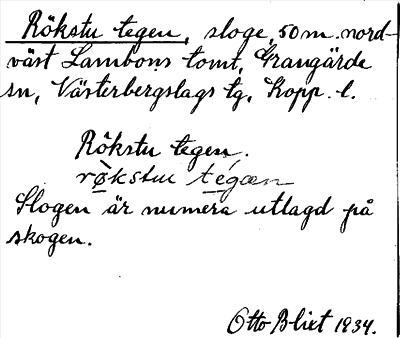 Rökstu tegen, sloge, 50 m. nord-
väst Lambons tomt, Grangärde
sn, Västerbergslags tg, Kopp. l.
Rökstu tegen.
røkstu tégæn
Slogen är numera utlagd på
skogen.
Otto Blixt 1934.